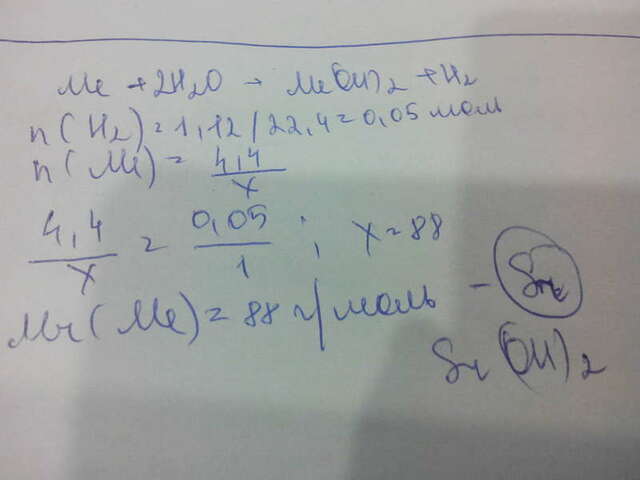 Me + 2H₂O → Me(OH)₂ + H₂
n(H₂) = 1,12/22,4 = 0,05 моль
n(Me) = 4,4/x
4,4/x = 0,05/1 ; x = 88
Mr(Me) = 88 г/моль - Sr
Sr(OH)₂